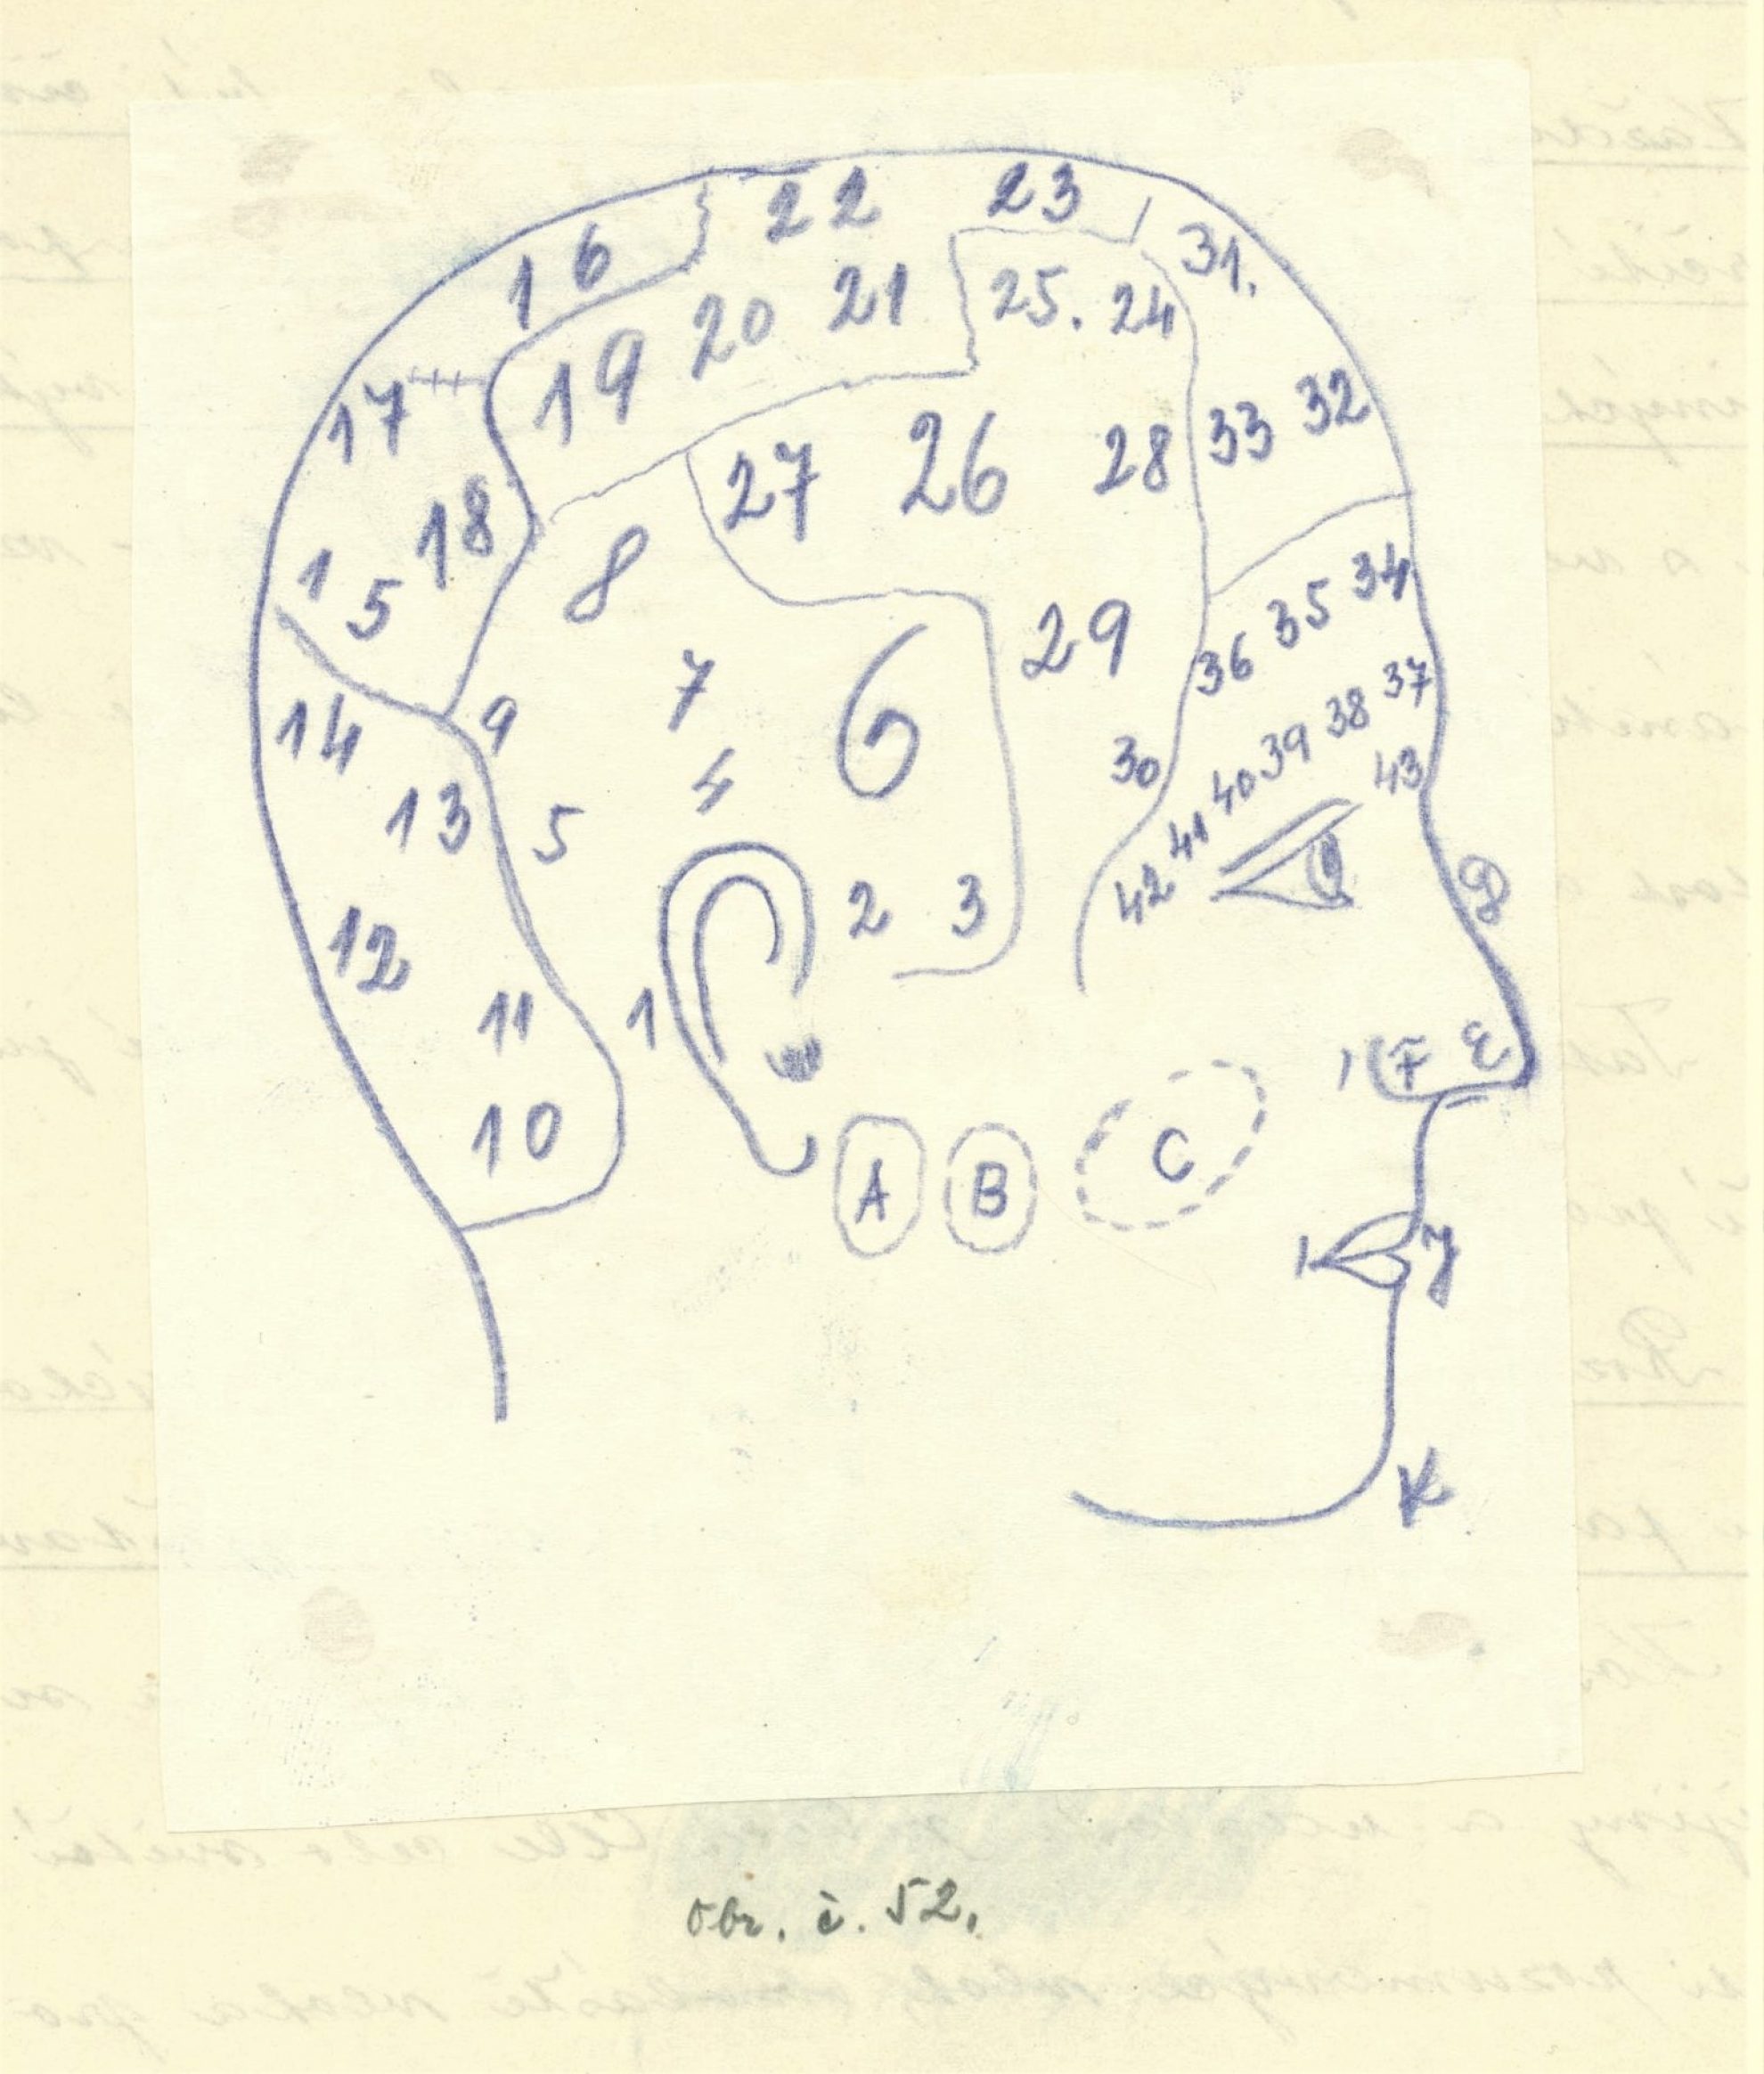 22 23
16 31.
20 21 25. 24
17 19 33 32
27 26 28
18 8
15 36 35 34
7 6 29
14 9 30 39 38 37
4 40 43
13 5 41
12 2 3 42
11 1 F E
10 A B C
K
obr. č. 52.